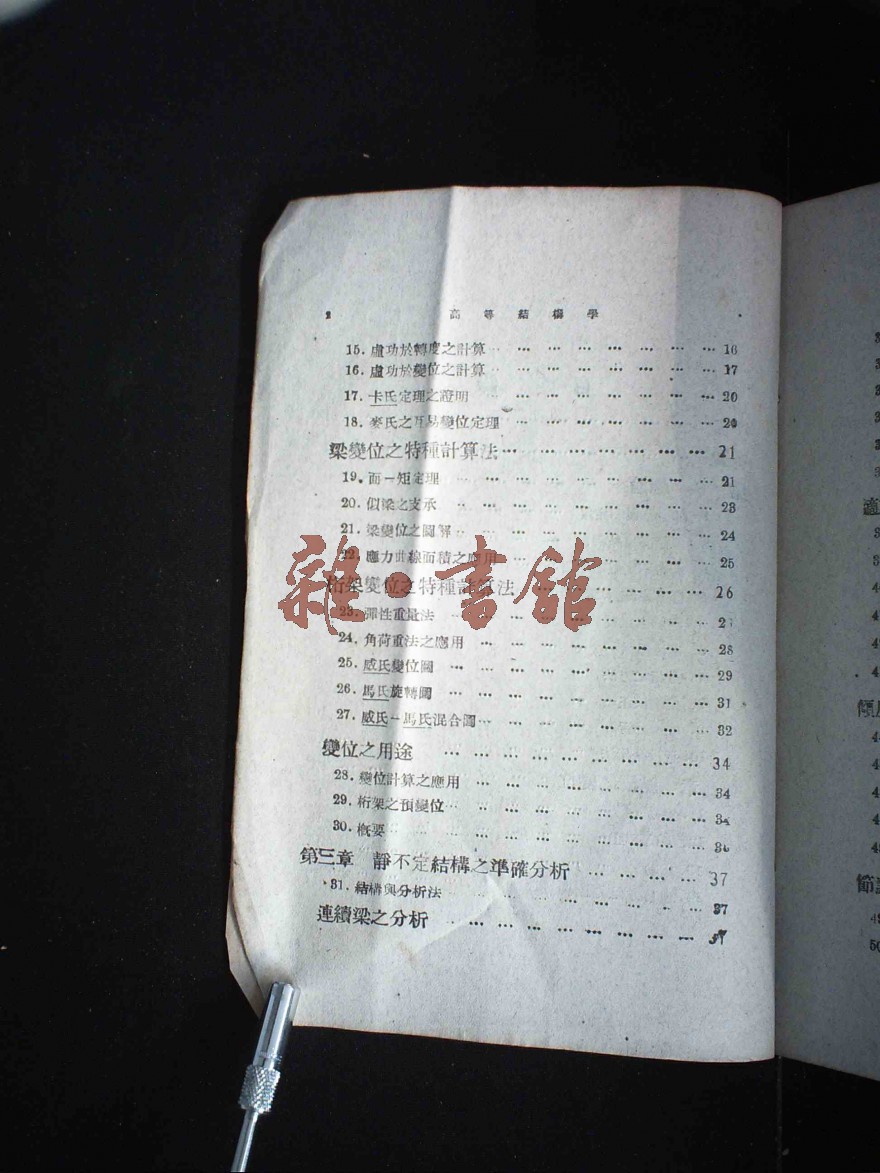 2 高等結構學
15. 虛功於轉度之計算 … … … … … … … 16
16. 虛功於變位之計算 … … … … … … … 17
17. 卡氏定理之證明 … … … … … … … 20
18. 麥氏之互易變位定理 … … … … … … 20
梁變位之特種計算法 … … … … … … … 21
19. 面一矩定理 … … … … … … … … 21
20. 似梁之支承 … … … … … … … … 23
21. 梁變位之圖解 … … … … … … … 24
22. 應力曲線面積之應用 … … … … … … 25
桁架變位之特種計算法 … … … … … … 26
23. 彈性重量法 … … … … … … … … 27
24. 角荷重法之應用 … … … … … … … 28
25. 威氏變位圖 … … … … … … … … 29
26. 馬氏旋轉圖 … … … … … … … … 31
27. 威氏一馬氏混合圖 … … … … … … 32
變位之用途 … … … … … … … … 34
28. 變位計算之應用 … … … … … … … 34
29. 桁架之預變位 … … … … … … … 34
30. 概要 … … … … … … … … … 36
第三章 靜不定結構之準確分析 … … … … 37
31. 結構與分析法 … … … … … … … 37
連續梁之分析 … … … … … … … …
雜·書舘
適
傾
節